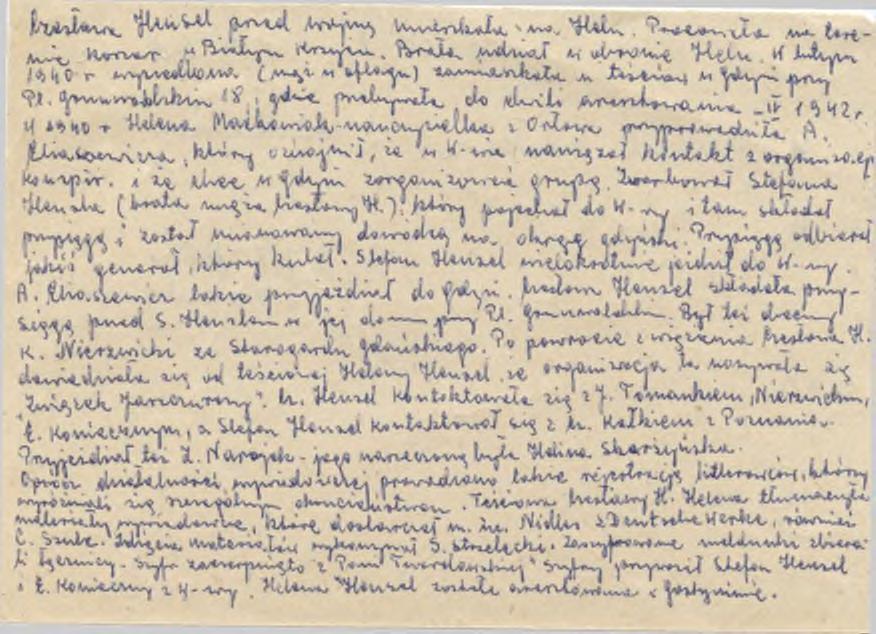 Czesława Heńsel przed wojną mieszkała na Helu. Pracowała na tere-
nie koszar w Białym Krzyżu. Brała udział w obronie Helu. W lutym
1940 r wysiedlona (mąż w oflagu) zamieszkała u teściów w Gdyni przy
Pl. Grunwaldzkim 18, gdzie przebywała do chwili aresztowania - IV 1942 r.
W 1940 r Helena Maćkowiak - nauczycielka z Orłowa przyprowadziła A.
Eliaszewicza, który oznajmił, że w W-wie nawiązał kontakt z organizacją
konspir. i że chce w Gdyni zorganizować grupę. Zwerbował Stefana
Heńsla (brata męża Czesławy H.), który pojechał do W-wy i tam składał
przysięgę i został mianowany dowódcą na okręg gdyński. Przysięgę odbierał
jakiś generał, który kulał. Stefan Heńsel wielokrotnie jeździł do W-wy.
A. Eliaszewicz także przyjeżdżał do Gdyni. Czesława Heńsel składała przy-
sięgę przed S. Heńslem w jej domu przy Pl. Grunwaldzkim. Był też obecny
K. Nierzwicki ze Starogardu Gdańskiego. Po powrocie z więzienia Czesława H.
dowiedziała się od teściowej Heleny Heńsel, że organizacja ta nazywała się
"Związek Jaszczurczy". Cz. Heńsel kontaktowała się z J. Tomankiem, Nierzwickim,
E. Koniecznym, a Stefan Heńsel kontaktował się z Kałkiem z Poznania.
Przyjeżdżał też Z. Narojek - jego narzeczoną była Halina Skarżyńska.
Oprócz działalności wywiadowczej prowadzono także rejestrację hitlerowców, którzy
wyróżniali się szczególnym okrucieństwem. Teściowa Czesławy H. Helena tłumaczyła
materiały wywiadowcze, które dostarczał m. in. Nidler z Deutsche Werke, również
C. Szulc. Zdjęcia materiałów wykonywał S. Strzelecki. Zaszyfrowane meldunki zbiera-
li łącznicy. Szyfr zaczerpnięto z "Pani Twardowskiej". Szyfry przywoził Stefan Heńsel
i E. Konieczny z W-wy. Helena Heńsel została aresztowana w Gostyninie.